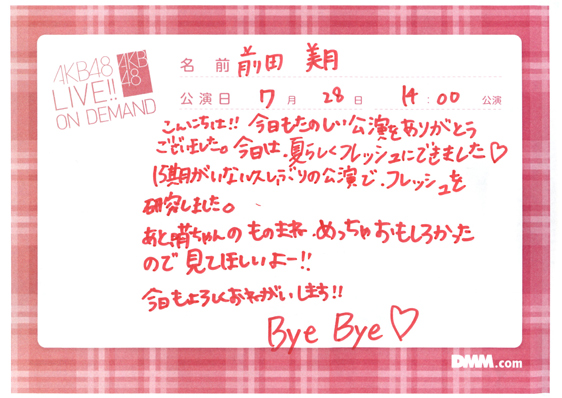 AKB48
LIVE!!
ON DEMAND
AKB
48
名前 前田 美月
公演日 7月 28日 14:00 公演
こんにちは!! 今日もたのしい公演をありがとう
ございました。今日は、夏らしくフレッシュにできました♡
15期がいない久しぶりの公演で、フレッシュを
研究しました。
あと、晴ちゃんのものまね、めっちゃおもしろかった
ので見てほしいよー!!
今日もよろしくおねがいします!!
Bye Bye♡
DMM.com